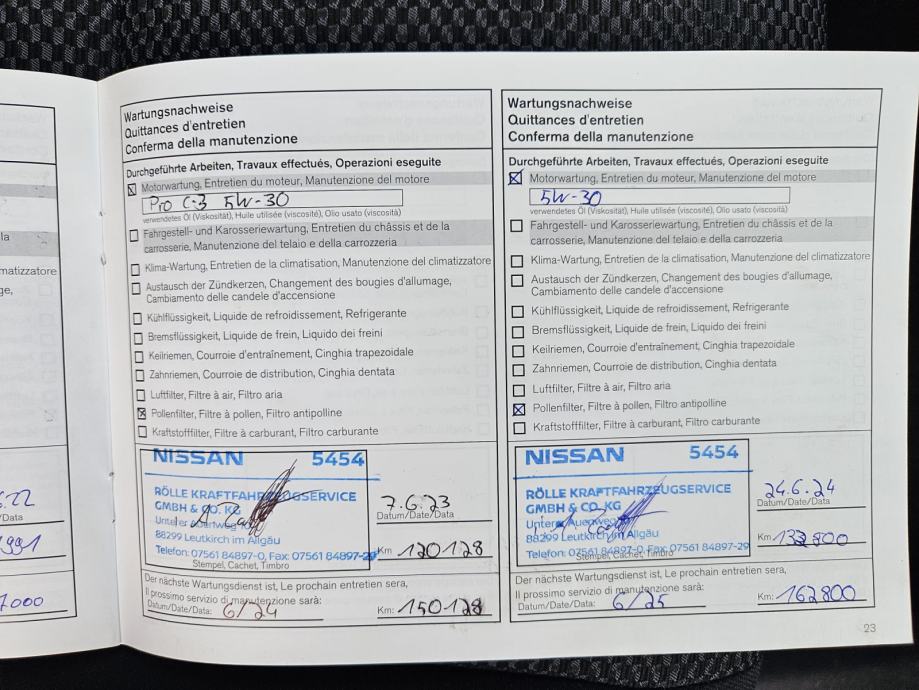 la
matizzatore
ge,
6.22
/Data
991
7000
Wartungsnachweise
Quittances d'entretien
Conferma della manutenzione
Durchgeführte Arbeiten, Travaux effectués, Operazioni eseguite
Motorwartung, Entretien du moteur, Manutenzione del motore
Pro C-3 5W-30
verwendetes Öl (Viskosität), Huile utilisée (viscosité), Olio usato (viscosità)
Fahrgestell- und Karosseriewartung, Entretien du châssis et de la
carrosserie, Manutenzione del telaio e della carrozzeria
Klima-Wartung, Entretien de la climatisation, Manutenzione del climatizzatore
Austausch der Zündkerzen, Changement des bougies d'allumage,
Cambiamento delle candele d'accensione
Kühlflüssigkeit, Liquide de refroidissement, Refrigerante
Bremsflüssigkeit, Liquide de frein, Liquido dei freini
Keilriemen, Courroie d'entraînement, Cinghia trapezoidale
Zahnriemen, Courroie de distribution, Cinghia dentata
Luftfilter, Filtre à air, Filtro aria
Pollenfilter, Filtre à pollen, Filtro antipolline
Kraftstofffilter, Filtre à carburant, Filtro carburante
NISSAN 5454
RÖLLE KRAFTFAHRZEUGSERVICE
GMBH & CO. KG
Unterer Auenweg
88299 Leutkirch im Allgäu
Telefon: 07561 84897-0, Fax: 07561 84897-29
Stempel, Cachet, Timbro
7.6.23
Datum/Date/Data
Km 120128
Der nächste Wartungsdienst ist, Le prochain entretien sera,
Il prossimo servizio di manutenzione sarà:
Datum/Date/Data: 6/24 Km: 150128
Wartungsnachweise
Quittances d'entretien
Conferma della manutenzione
Durchgeführte Arbeiten, Travaux effectués, Operazioni eseguite
Motorwartung, Entretien du moteur, Manutenzione del motore
5W-30
verwendetes Öl (Viskosität), Huile utilisée (viscosité), Olio usato (viscosità)
Fahrgestell- und Karosseriewartung, Entretien du châssis et de la
carrosserie, Manutenzione del telaio e della carrozzeria
Klima-Wartung, Entretien de la climatisation, Manutenzione del climatizzatore
Austausch der Zündkerzen, Changement des bougies d'allumage,
Cambiamento delle candele d'accensione
Kühlflüssigkeit, Liquide de refroidissement, Refrigerante
Bremsflüssigkeit, Liquide de frein, Liquido dei freini
Keilriemen, Courroie d'entraînement, Cinghia trapezoidale
Zahnriemen, Courroie de distribution, Cinghia dentata
Luftfilter, Filtre à air, Filtro aria
Pollenfilter, Filtre à pollen, Filtro antipolline
Kraftstofffilter, Filtre à carburant, Filtro carburante
NISSAN 5454
RÖLLE KRAFTFAHRZEUGSERVICE
GMBH & CO. KG
Unterer Auenweg
88299 Leutkirch im Allgäu
Telefon: 07561 84897-0, Fax: 07561 84897-29
Stempel, Cachet, Timbro
24.6.24
Datum/Date/Data
Km 132800
Der nächste Wartungsdienst ist, Le prochain entretien sera,
Il prossimo servizio di manutenzione sarà:
Datum/Date/Data: 6/25 Km: 162800
23